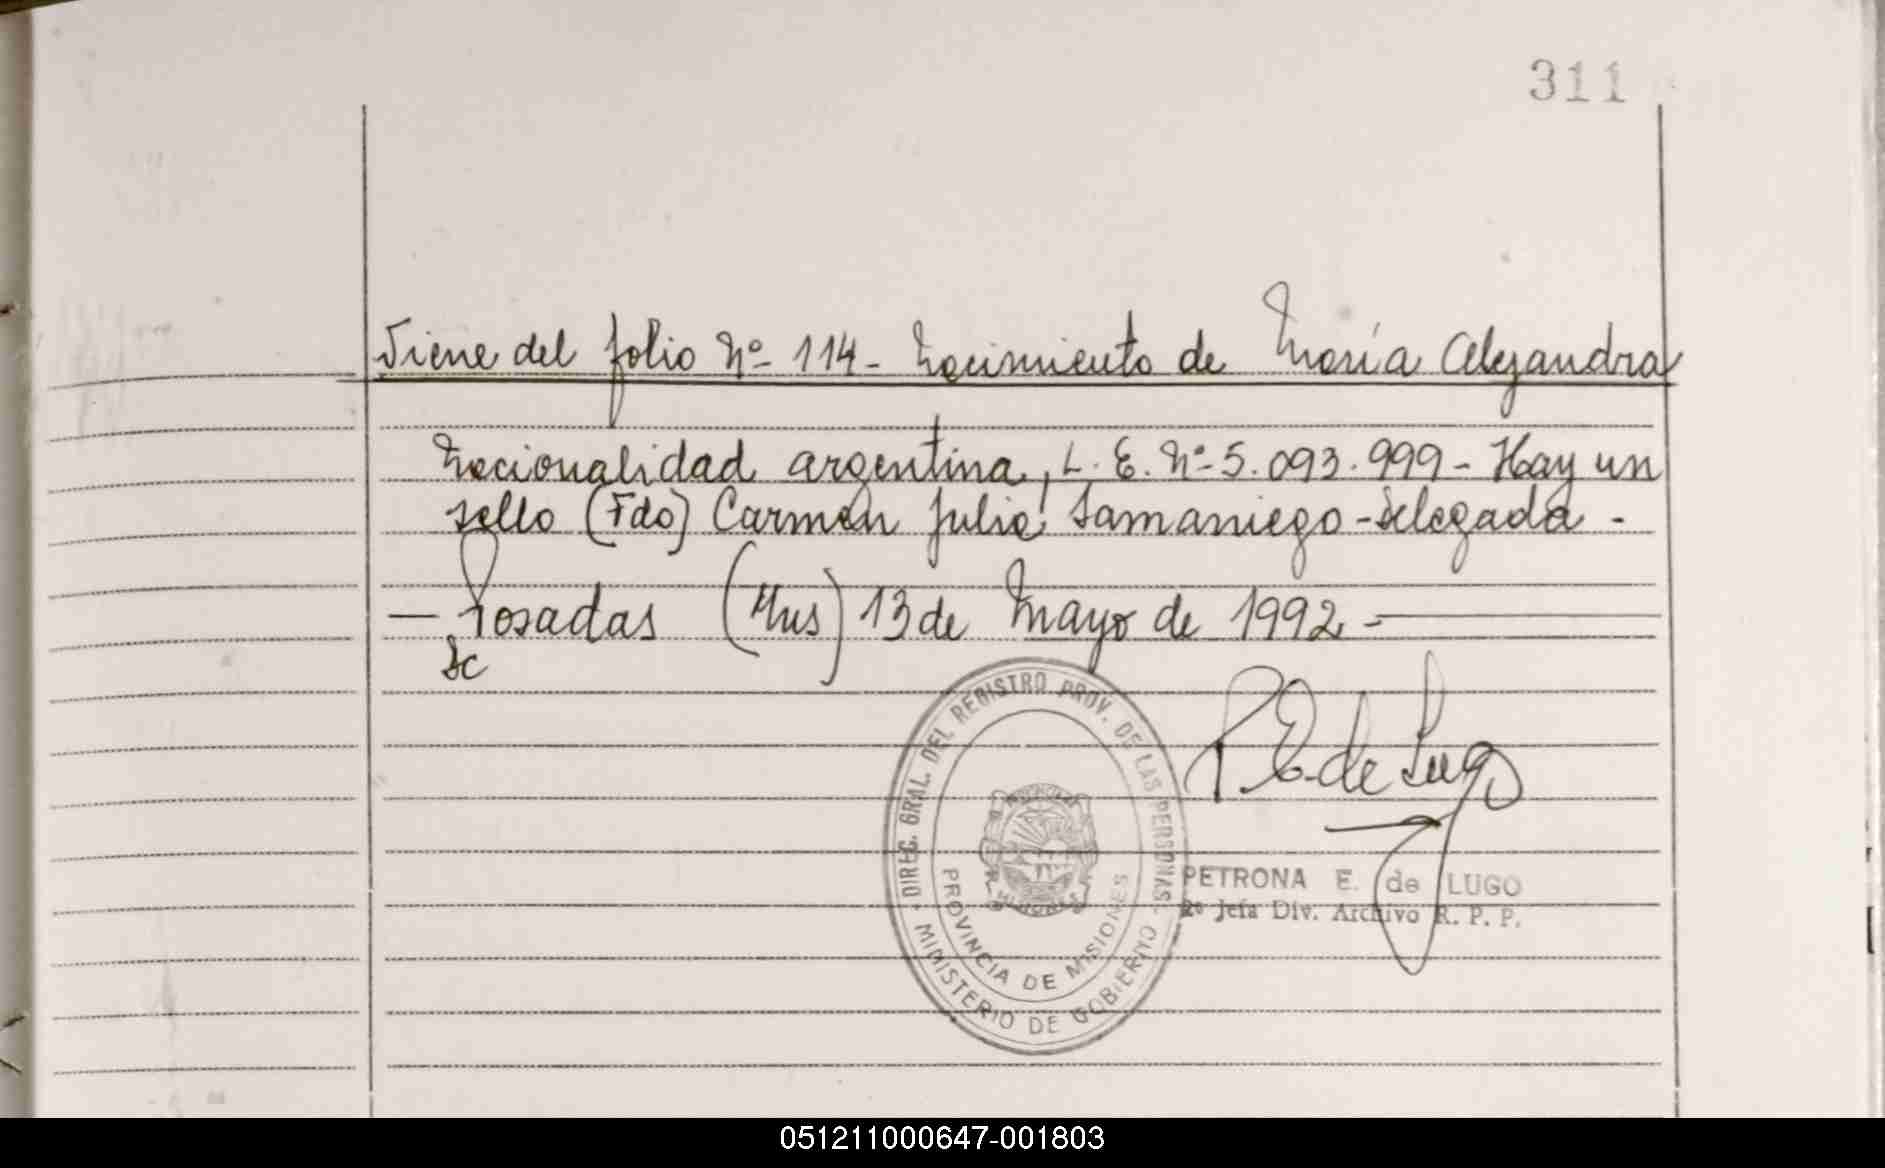 311
Viene del folio Nº 114 - Nacimiento de María Alejandra
Nacionalidad argentina, L. E. Nº 5.093.999 - Hay un
sello (Fdo) Carmen Julia Samaniego - Delegada -
— Posadas (Mns) 13 de Mayo de 1992 -
Sc
P. E. de Lugo
DIREC. GRAL. DEL REGISTRO PROV. DE LAS PERSONAS
MINISTERIO DE GOBIERNO
PROVINCIA DE MISIONES
PETRONA E. de LUGO
2º Jefa Div. Archivo R. P. P.
051211000647-001803